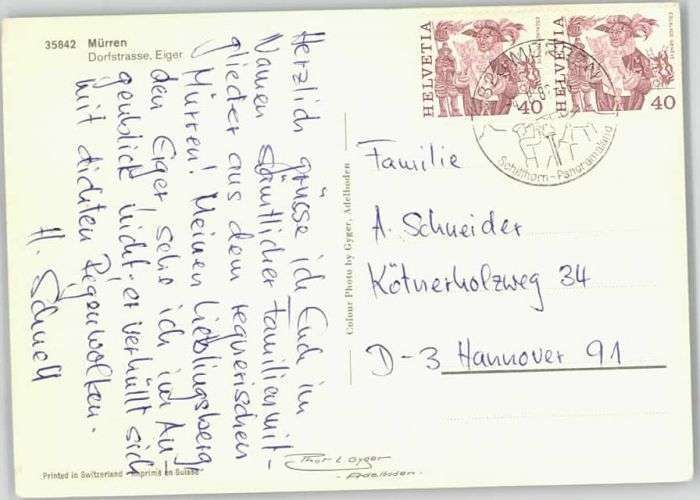 35842 Mürren
Dorfstrasse, Eiger
Herzlich grüsse ich Euch im
Namen sämtlicher Familienmit-
glieder aus dem regnerischen
Mürren! Meinen Lieblingsberg,
den Eiger, sehe ich im Au-
genblick nicht; er verhüllt sich
mit dichten Regenwolken.
H. Schnell
Colour Photo by Gyger, Adelboden
HELVETIA
40
HELVETIA
40
MÜRREN
Schilthorn-Panoramaland
Familie
A. Schneider
Kötnerholzweg 34
D-3 Hannover 91
Printed in Switzerland - Imprimé en Suisse
Phot. E. Gyger
- Adelboden -